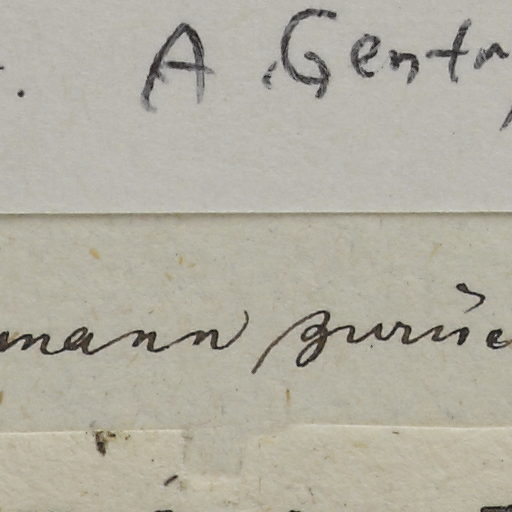 . A. Gentr
mann zurüc